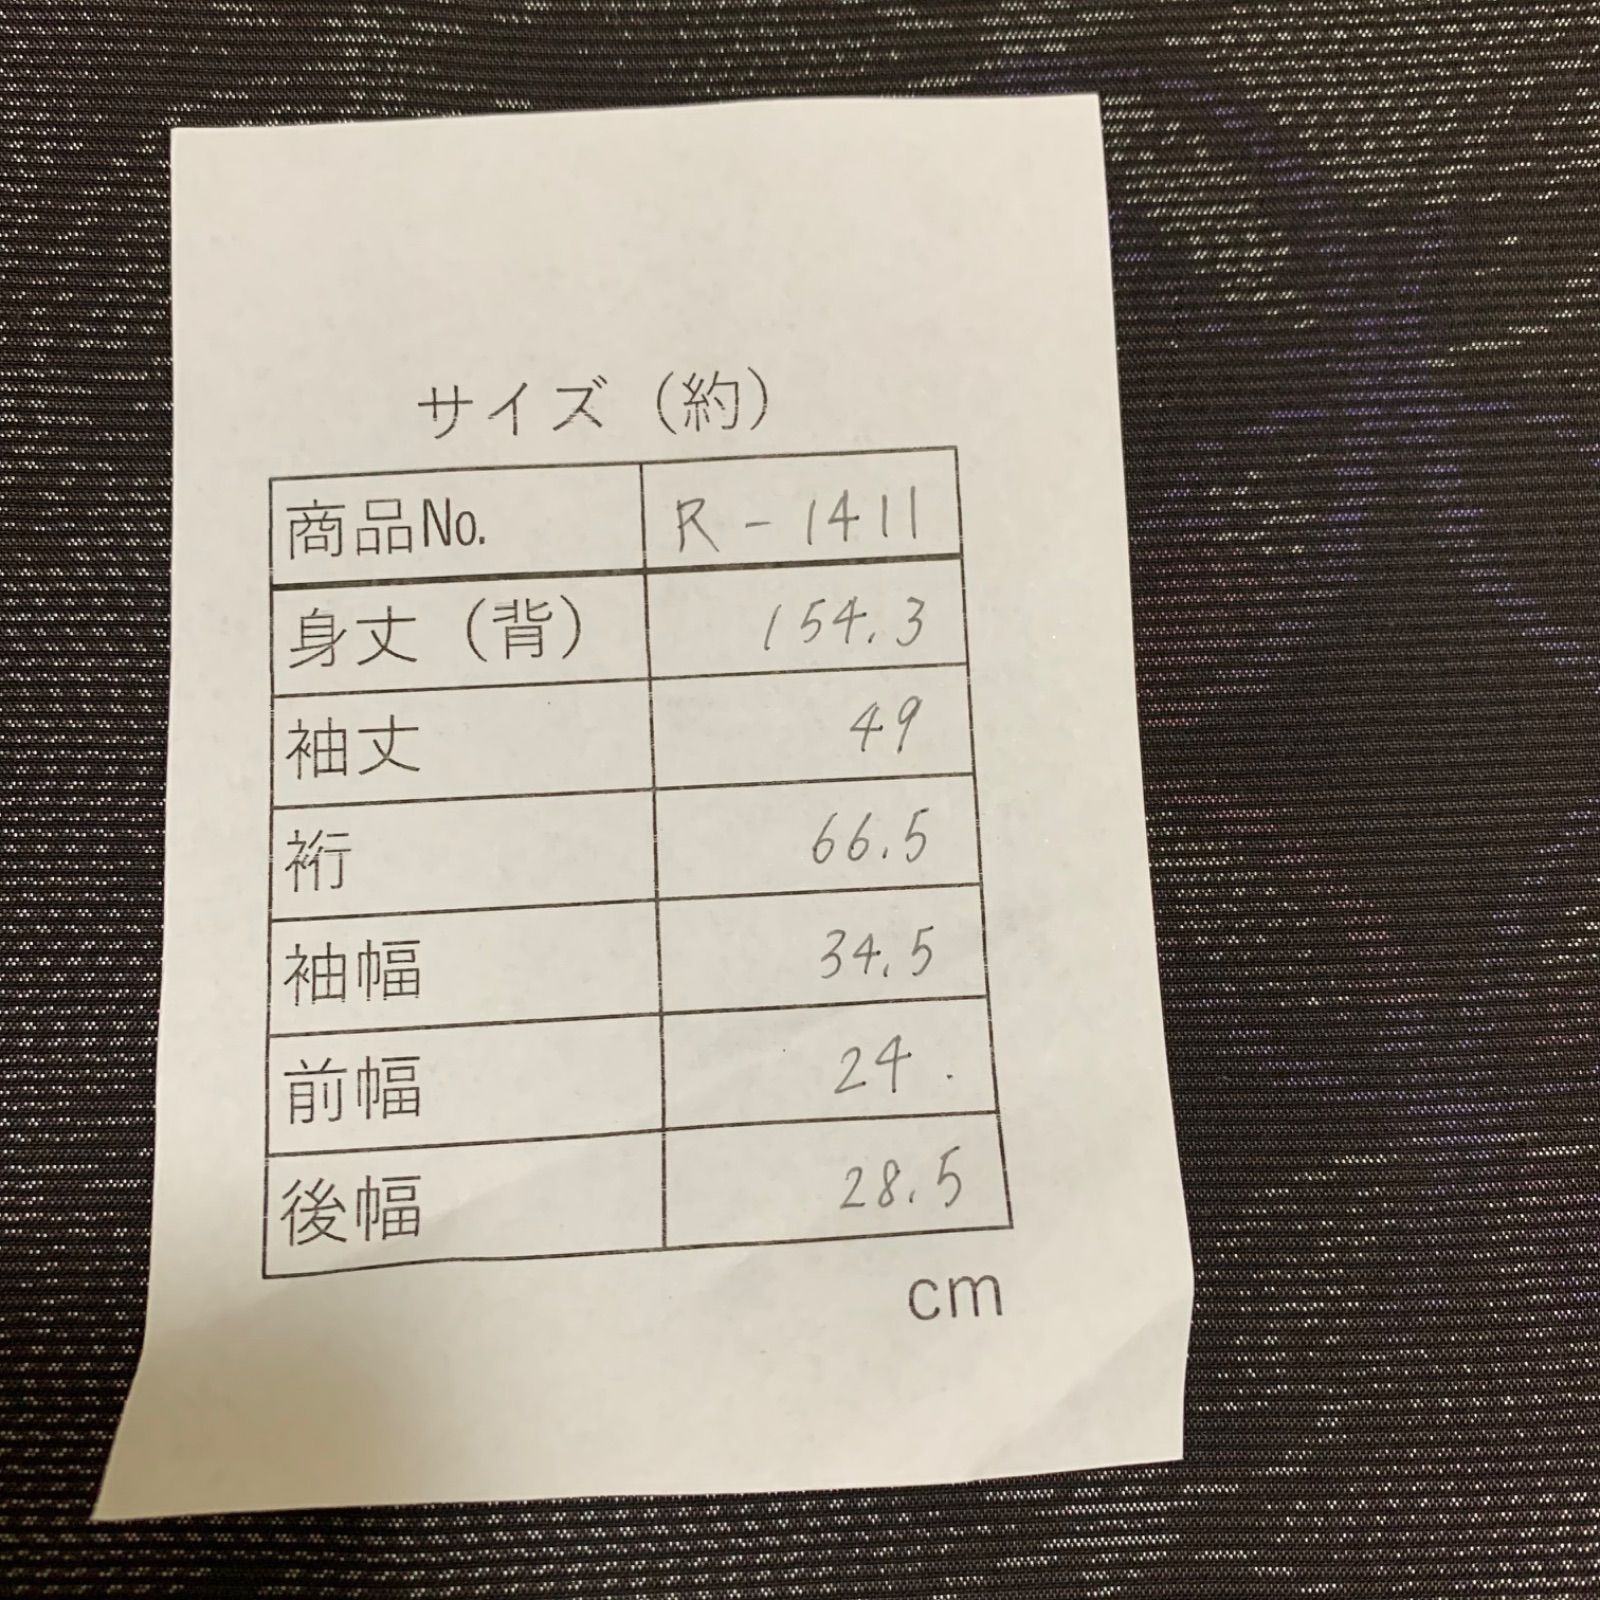 サイズ（約）
商品No. R-1411
身丈（背） 154.3
袖丈 49
裄 66.5
袖幅 34.5
前幅 24.
後幅 28.5
cm